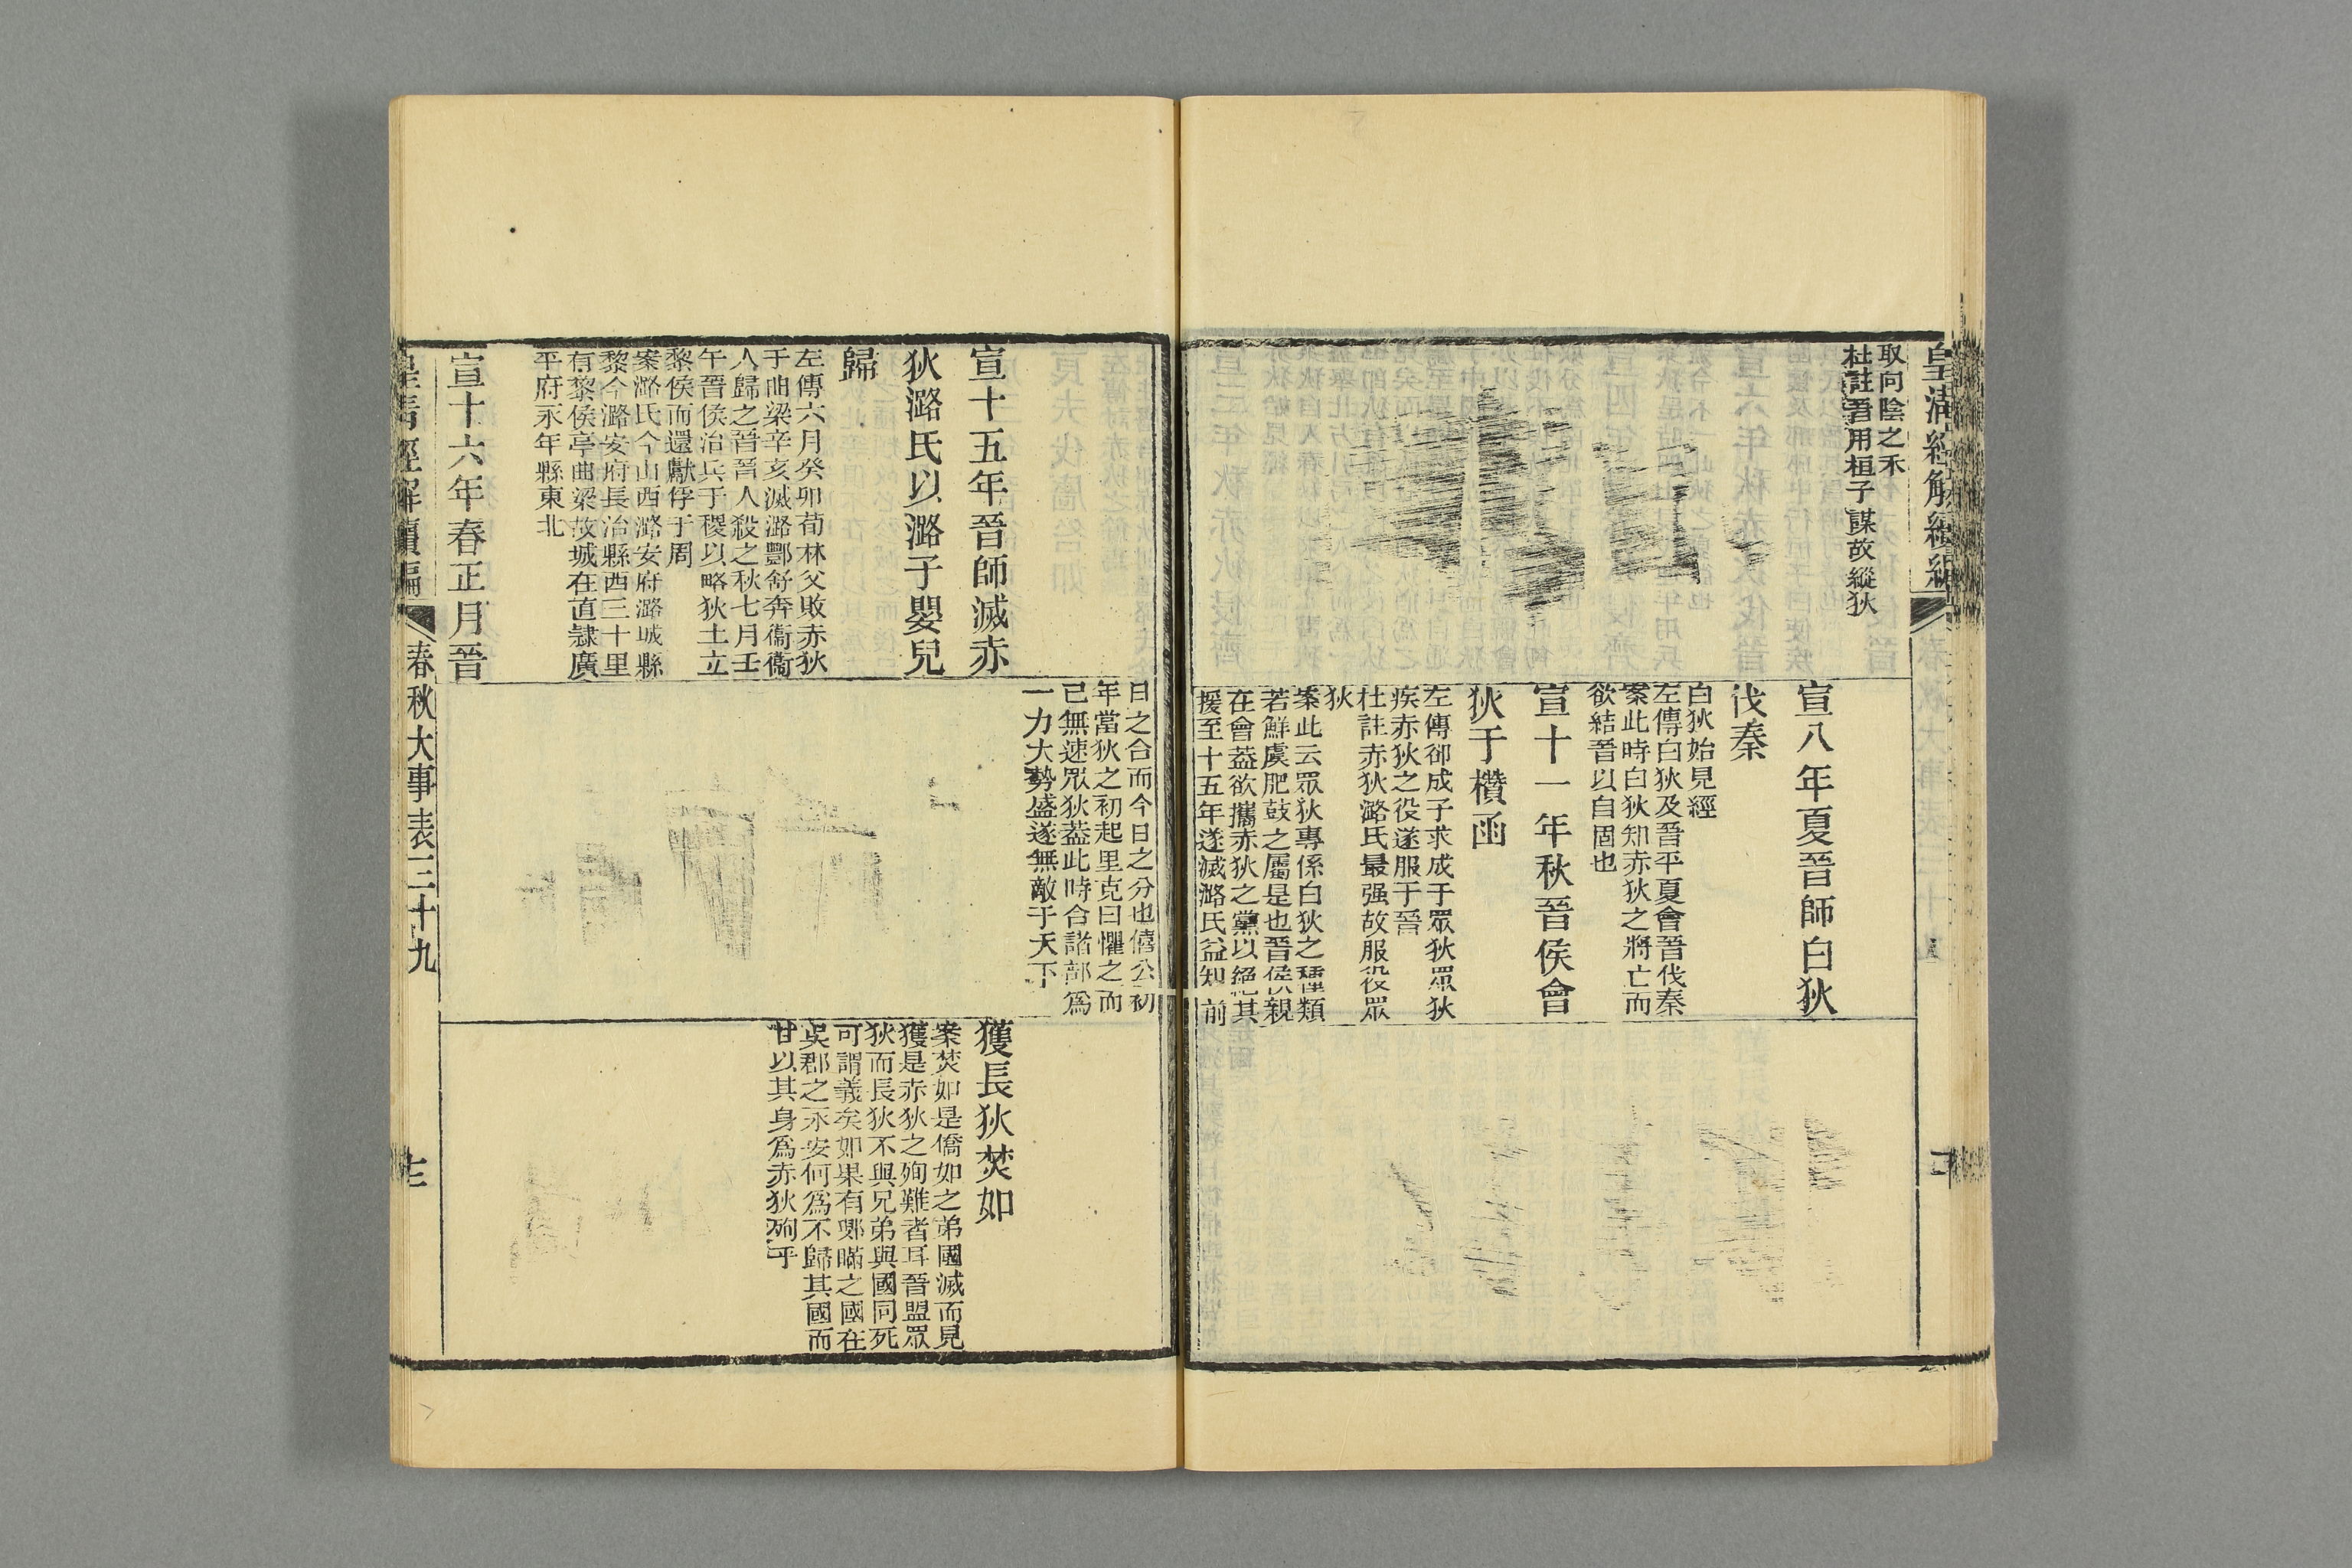 皇清經解續編
取向陰之禾
杜註晉用桓子謀故縱狄
宣八年夏晉師白狄
伐秦
白狄始見經
左傳白狄及晉平夏會晉伐秦
案此時白狄知赤狄之將亡而
欲結晉以自固也
宣十一年秋晉侯會
狄于欑函
左傳郤成子求成于眾狄眾狄
疾赤狄之役遂服于晉
杜註赤狄潞氏最强故服役眾
狄
案此云眾狄專係白狄之種類
若鮮虞肥鼓之屬是也晉侯親
在會蓋欲攜赤狄之黨以絕其
援至十五年遂滅潞氏益知前
日之合而今日之分也僖公初
年當狄之初起里克曰懼之而
已無速眾狄蓋此時合諸部為
一力大勢盛遂無敵于天下
宣十五年晉師滅赤
狄潞氏以潞子嬰兒
歸
左傳六月癸卯荀林父敗赤狄
于曲梁辛亥滅潞酆舒奔衞衞
人歸之晉晉人殺之秋七月壬
午晉侯治兵于稷以略狄土立
黎侯而還獻俘于周
案潞氏今山西潞安府潞城縣
黎今潞安府長治縣西三十里
有黎侯亭曲梁故城在直隸廣
平府永年縣東北
宣十六年春正月晉
獲長狄焚如
案焚如是僑如之弟國滅而見
獲是赤狄之殉難者耳晉盟眾
狄而長狄不與兄弟與國同死
可謂義矣如果有鄋瞞之國在
吳郡之永安何為不歸其國而
甘以其身為赤狄殉乎
皇清經解續編
春秋大事表三十九